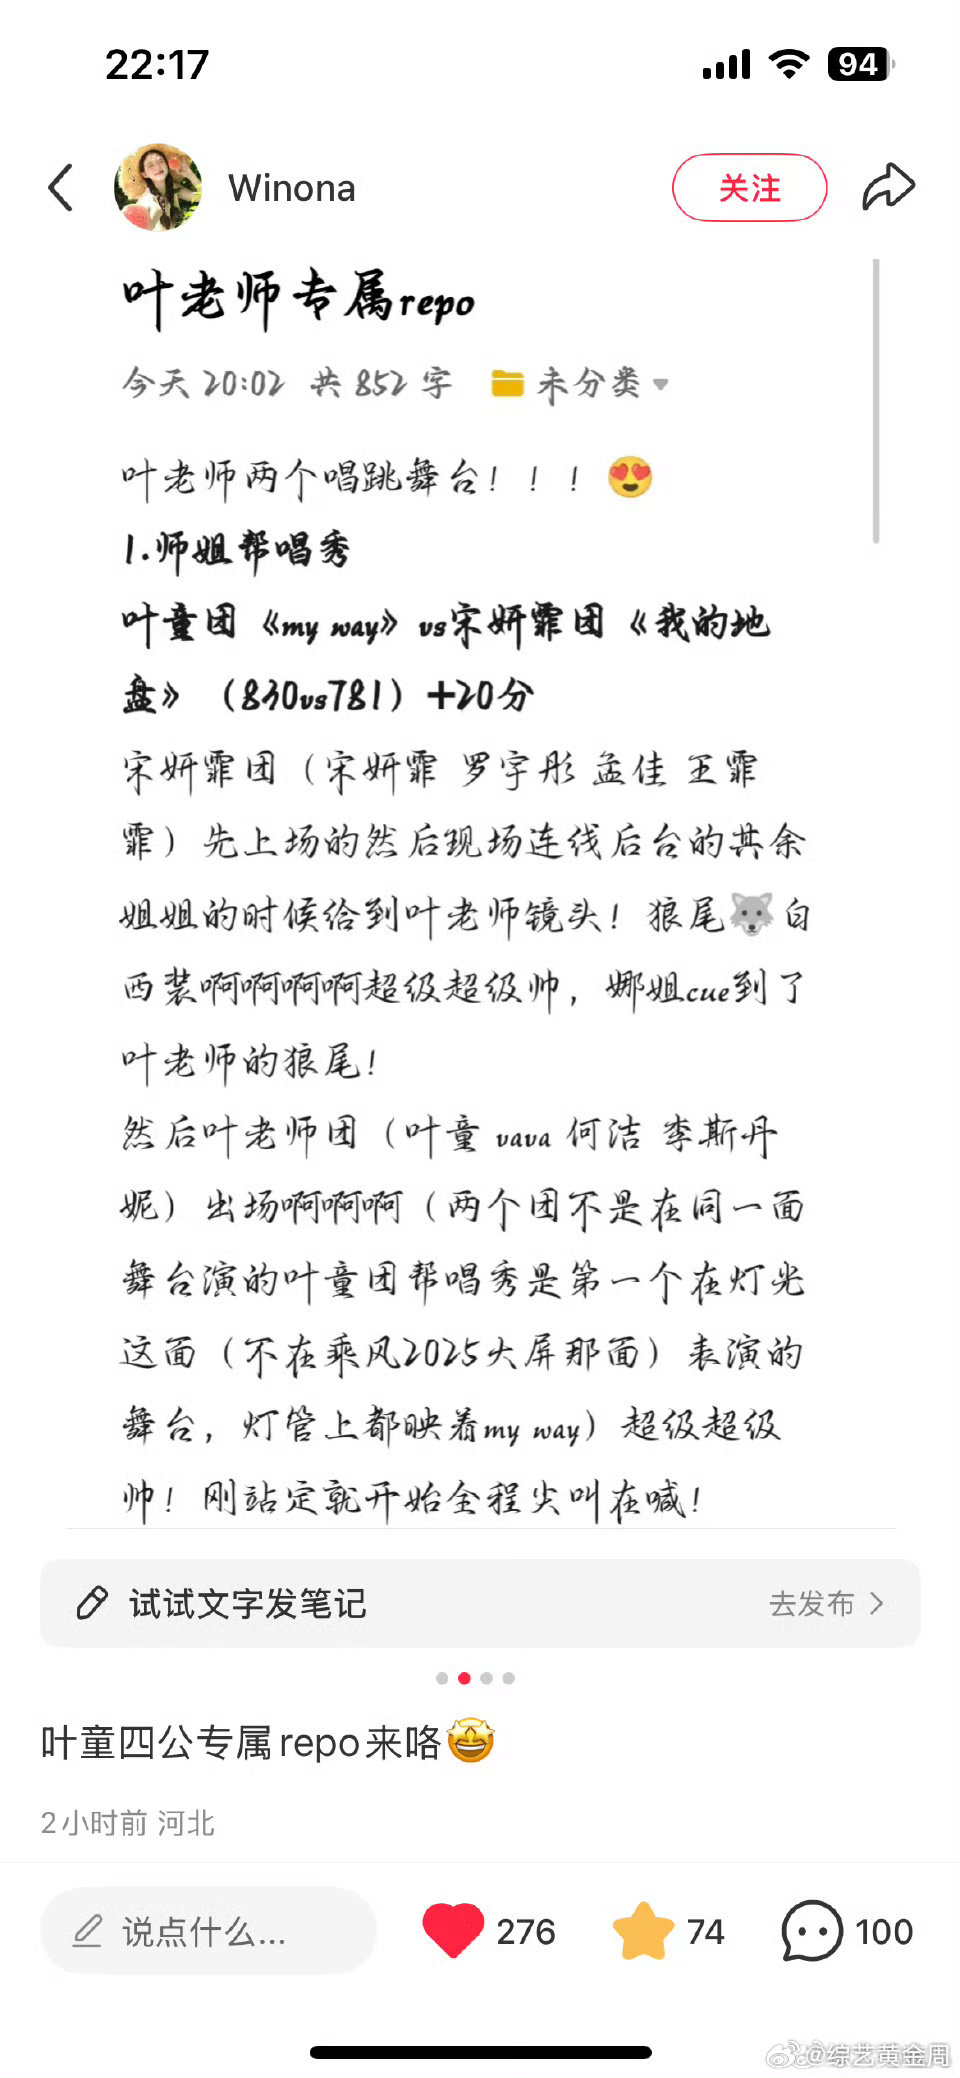 22:17
94
Winona
关注
叶老师专属repo
今天 20:02 共 852 字 未分类
叶老师两个唱跳舞台！！！😍
1.师姐帮唱秀
叶童团《my way》vs宋妍霏团《我的地
盘》（830vs781）+20分
宋妍霏团（宋妍霏 罗宇彤 孟佳 王霏
霏）先上场的然后现场连线后台的其余
姐姐的时候给到叶老师镜头！狼尾🐺白
西装啊啊啊啊超级超级帅，娜姐cue到了
叶老师的狼尾！
然后叶老师团（叶童 vava 何洁 李斯丹
妮）出场啊啊啊（两个团不是在同一面
舞台演的叶童团帮唱秀是第一个在灯光
这面（不在乘风2025大屏那面）表演的
舞台，灯管上都映着my way）超级超级
帅！刚站定就开始全程尖叫在喊！
试试文字发笔记
去发布
叶童四公专属repo来咯🤩
2小时前 河北
说点什么...
276
74
100
@综艺黄金周